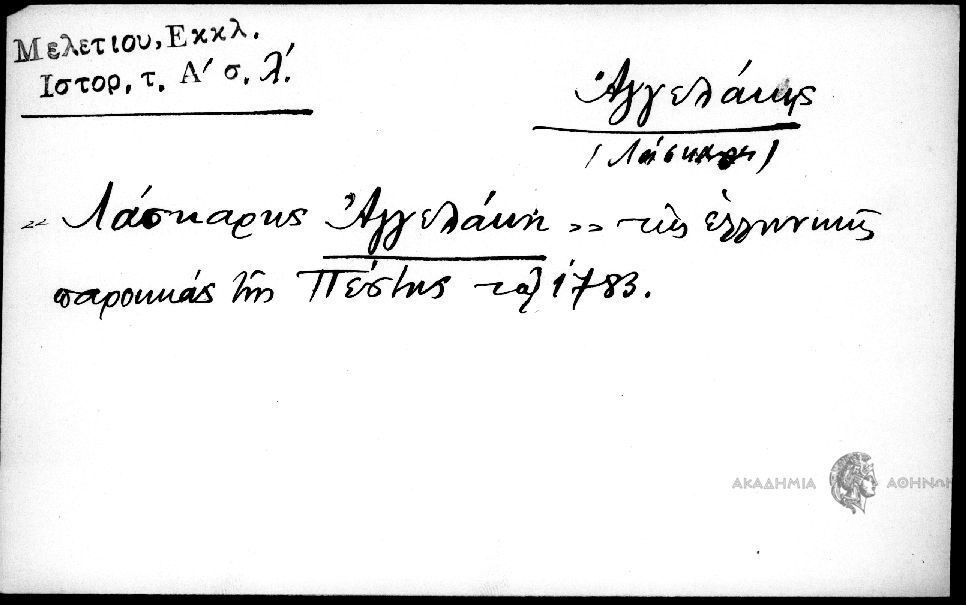 Μελετιου, Εκκλ.
Ιστορ, τ. Α' σ. λ'.
Ἀγγελάκης
(Λάσκαρις)
"Λάσκαρης Ἀγγελάκη" τῆς ἑλληνικῆς
παροικιάς τῆς Πέστης τοῦ 1783.
ΑΚΑΔΗΜΙΑ ΑΘΗΝΩΝ